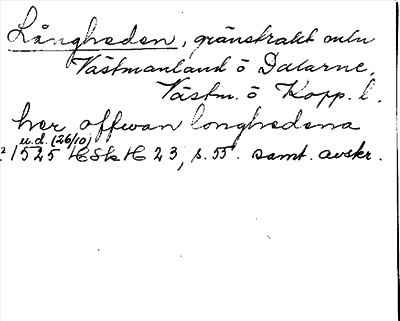 Långheden, gränstrakt mln
Västmanland o Dalarne,
Västm. o Kopp. l.
her offwan longhedena
u.d. (26/10)
1525 HSH 23, s. 55. samt. avskr.